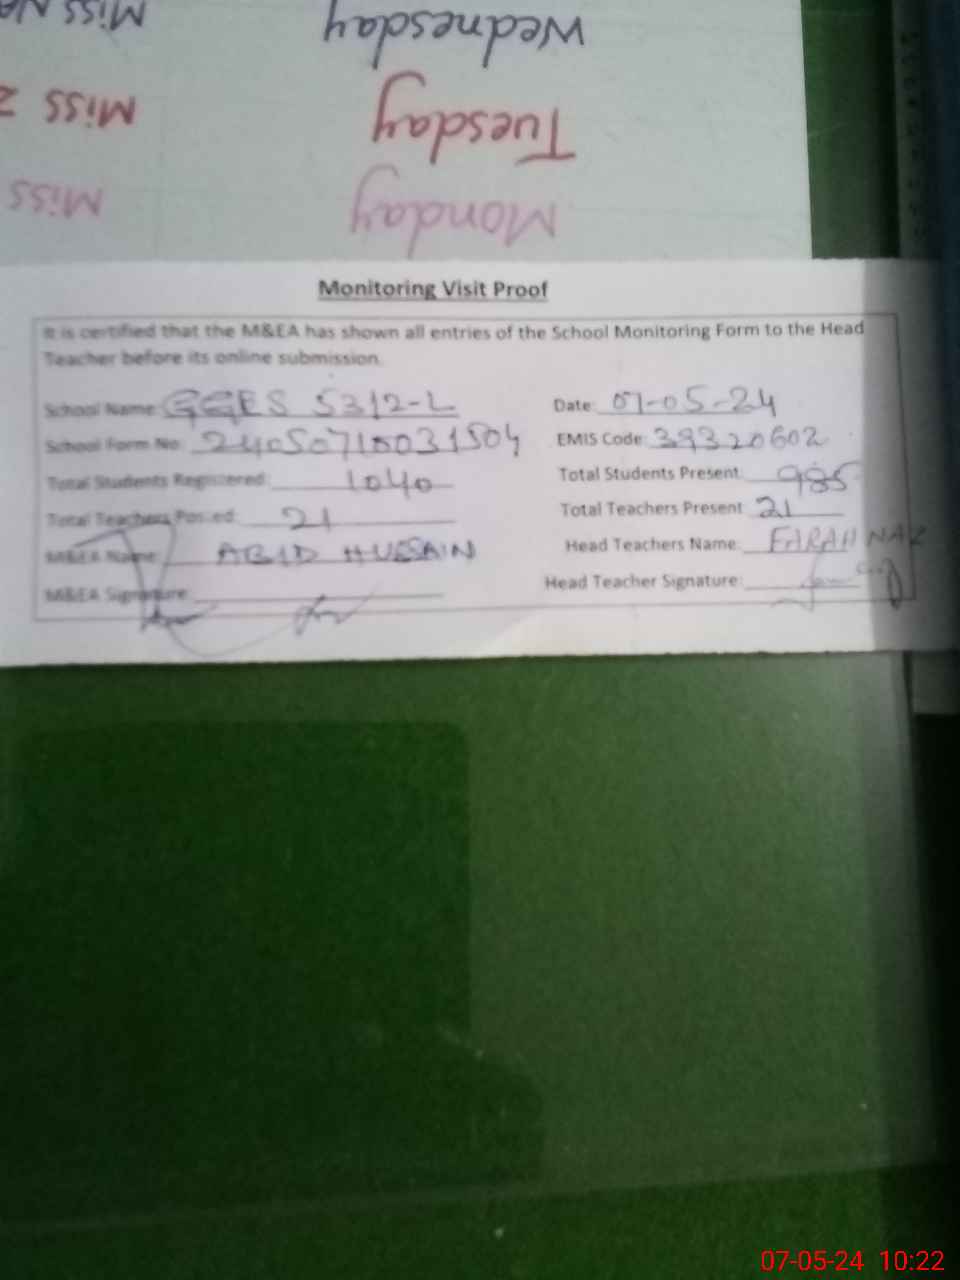 Wednesday
Miss
Tuesday
Miss
Monday
Miss
Monitoring Visit Proof
It is certified that the M&EA has shown all entries of the School Monitoring Form to the Head
Teacher before its online submission.
School Name: GGES 53/2-L Date: 07-05-24
School Form No: EMIS Code: 39320602
Total Students Registered: 1040 Total Students Present: 985
Total Teachers Posted: 21 Total Teachers Present 21
M&EA Name: ABID HUSSAIN Head Teachers Name: FARAH NAZ
M&EA Signature: Head Teacher Signature:
07-05-24 10:22